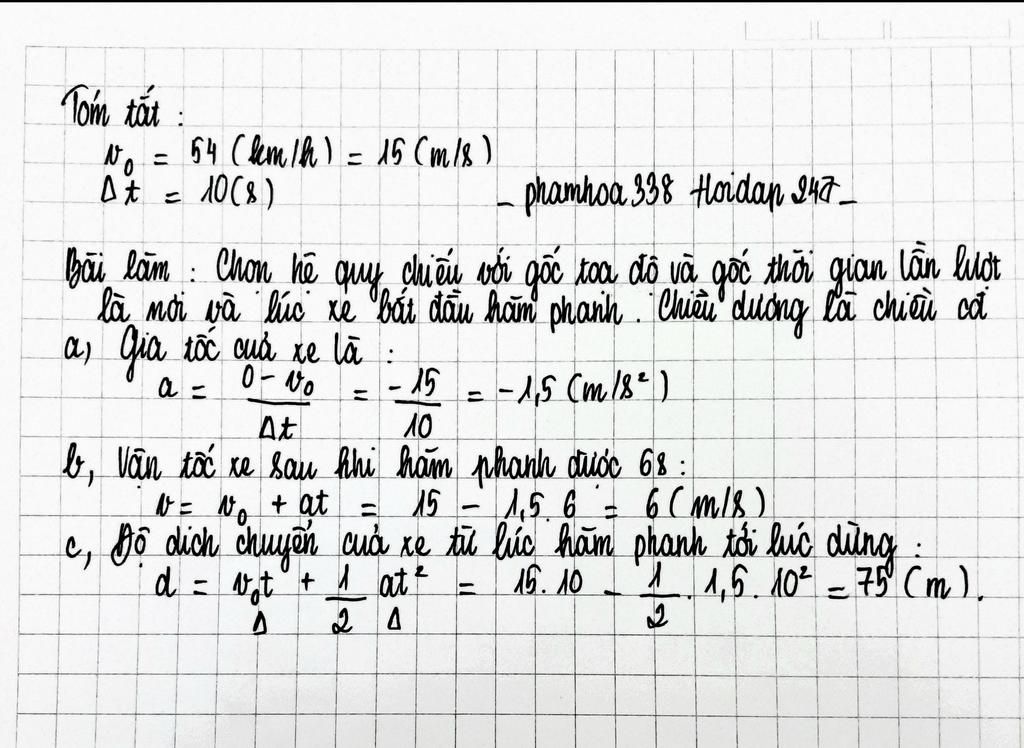 Tóm tắt :
v₀ = 54 (km/h) = 15 (m/s)
Δt = 10(s) – phamhoa338 Hoidap247 –
Bài làm : Chọn hệ quy chiếu với gốc toạ độ và gốc thời gian lần lượt
là nơi và lúc xe bắt đầu hãm phanh. Chiều dương là chiều cđ
a, Gia tốc của xe là :
a = (0 – v₀)/Δt = –15/10 = –1,5 (m/s²)
b, Vận tốc xe sau khi hãm phanh được 6s :
v = v₀ + at = 15 – 1,5.6 = 6 (m/s)
c, Độ dịch chuyển của xe từ lúc hãm phanh tới lúc dừng :
d = v₀t + 1/2 at² = 15.10 – 1/2 . 1,5 . 10² = 75 (m).
Δ Δ